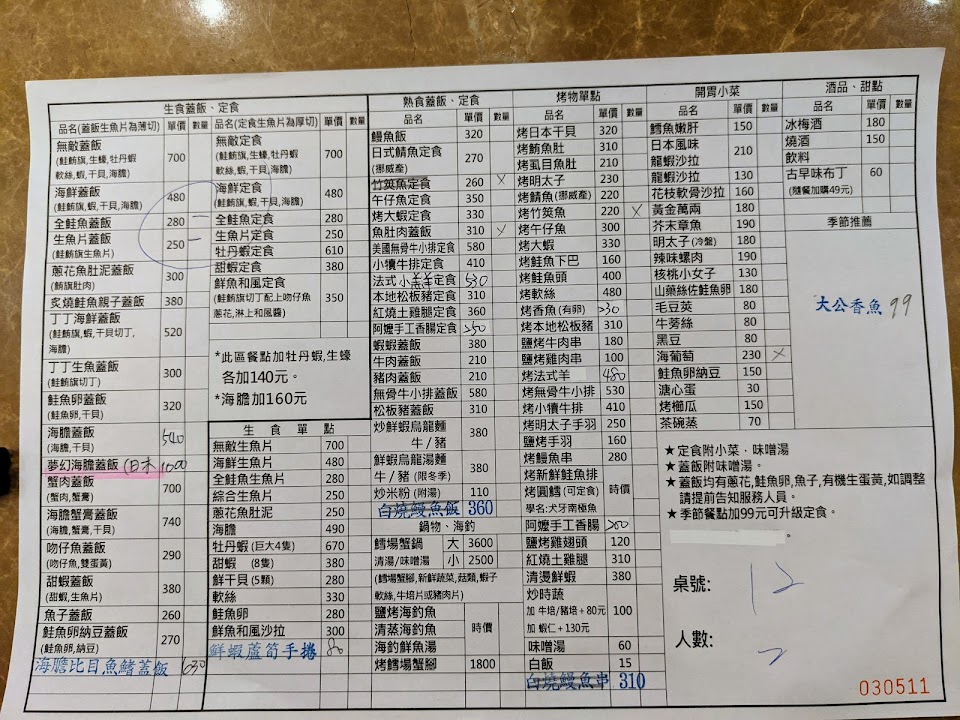 生食蓋飯、定食
品名(蓋飯生魚片為薄切) 單價 數量
無敵蓋飯 700
(鮭鮪旗,生蠔,牡丹蝦
軟絲,蝦,干貝,海膽)
海鮮蓋飯 480
(鮭鮪旗,蝦,干貝,海膽)
全鮭魚蓋飯 280 一
生魚片蓋飯 250 一
(鮭鮪旗生魚片)
蔥花魚肚泥蓋飯 300
(鮭鮪肚肉)
炙燒鮭魚親子蓋飯 380
丁丁海鮮蓋飯 520
(鮭鮪旗,蝦,干貝切丁,
海膽)
丁丁生魚蓋飯 300
(鮭鮪旗切丁)
鮭魚卵蓋飯 320
(鮭魚卵,干貝)
海膽蓋飯 540
(海膽,干貝)
夢幻海膽蓋飯 (日本 1000
蟹肉蓋飯 700
(蟹肉,蟹膏)
海膽蟹膏蓋飯 740
(海膽,蟹膏,干貝)
吻仔魚蓋飯 290
(吻仔魚,雙蛋黃)
甜蝦蓋飯 380
(甜蝦,生魚片)
魚子蓋飯 260
鮭魚卵納豆蓋飯 270
(鮭魚卵,納豆)
海膽比目魚鰭蓋飯 630
品名(定食生魚片為厚切) 單價 數量
無敵定食 700
(鮭鮪旗,生蠔,牡丹蝦
軟絲,蝦,干貝,海膽)
海鮮定食 480
(鮭鮪旗,蝦,干貝,海膽)
全鮭魚定食 280
生魚片定食 250
牡丹蝦定食 610
甜蝦定食 380
鮮魚和風定食 350
(鮭鮪旗切丁配上吻仔魚
蔥花,淋上和風醬)
*此區餐點加牡丹蝦,生蠔
各加140元。
*海膽加160元
生食單點
無敵生魚片 700
海鮮生魚片 480
全鮭魚生魚片 280
綜合生魚片 250
蔥花魚肚泥 250
海膽 490
牡丹蝦 (巨大4隻) 670
甜蝦 (8隻) 380
鮮干貝 (5顆) 280
軟絲 330
鮭魚卵 280
鮮魚和風沙拉 300
鮮蝦蘆筍手捲 80
熟食蓋飯、定食
品名 單價 數量
鰻魚飯 320
日式鯖魚定食 270
(挪威產)
竹筴魚定食 260 x
午仔魚定食 350
烤大蝦定食 330
魚肚肉蓋飯 310 x
美國無骨牛小排定食 580
小犢牛排定食 410
法式小羔羊定食 530
本地松板豬定食 310
紅燒土雞腿定食 360
阿嬤手工香腸定食 250
蝦蝦蓋飯 380
牛肉蓋飯 210
豬肉蓋飯 210
無骨牛小排蓋飯 580
松板豬蓋飯 310
炒鮮蝦烏龍麵 380
牛 / 豬
鮮蝦烏龍湯麵 380
牛 / 豬 (限冬季)
炒米粉 (附湯) 110
白燒鰻魚飯 360
鍋物、海釣
鱈場蟹鍋 大 3600
清湯/味噌湯 小 2500
(鱈場蟹腳,新鮮蔬菜,菇類,蝦子
軟絲,牛培片或豬肉片)
鹽烤海釣魚 時價
清蒸海釣魚
海釣鮮魚湯
烤鱈場蟹腳 1800
烤物單點
品名 單價 數量
烤日本干貝 320
烤鮪魚肚 310
烤虱目魚肚 210
烤明太子 230
烤鯖魚 (挪威產) 220
烤竹筴魚 220 x
烤午仔魚 300
烤大蝦 330
烤鮭魚下巴 160
烤鮭魚頭 400
烤軟絲 480
烤香魚 (有卵) 230
烤本地松板豬 310
鹽烤牛肉串 180
鹽烤雞肉串 100
烤法式羊 480
烤無骨牛小排 530
烤小犢牛排 410
烤明太子手羽 250
鹽烤手羽 160
烤鰻魚串 280
烤新鮮鮭魚排 時價
烤圓鱈 (可定食)
學名:犬牙南極魚
阿嬤手工香腸 200
鹽烤雞翅頭 120
紅燒土雞腿 310
清燙鮮蝦 380
炒時蔬 100
加 牛培/豬培+80元
加 蝦仁+130元
味噌湯 60
白飯 15
白燒鰻魚串 310
開胃小菜
品名 單價 數量
鱈魚嫩肝 150
日本風味 210
龍蝦沙拉
龍蝦沙拉 130
花枝軟骨沙拉 160
黃金萬兩 180
芥末章魚 190
明太子 (冷盤) 180
辣味螺肉 190
核桃小女子 130
山藥絲佐鮭魚卵 180
毛豆莢 80
牛蒡絲 80
黑豆 80
海葡萄 230 x
鮭魚卵納豆 150
溏心蛋 30
烤櫛瓜 150
茶碗蒸 70
酒品、甜點
品名 單價 數量
冰梅酒 180
燒酒 150
飲料
古早味布丁 60
(隨餐加購49元)
季節推薦
大公香魚 99
★定食附小菜．味噌湯
★蓋飯附味噌湯。
★蓋飯均有蔥花,鮭魚卵,魚子,有機生蛋黃,如調整
請提前告知服務人員。
★季節餐點加99元可升級定食。
。
桌號: 12
人數: 2
030511